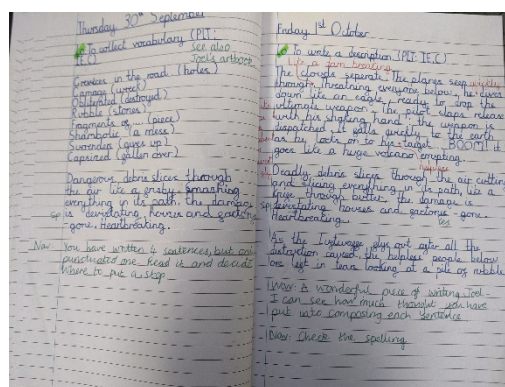 Thursday 30th September
LO To collect vocabulary (PLT:
IE,C)
See also
Joel's artbook
in the road (holes)
Damage (wreck)
Obliterated (destroyed)
Rubble (stones)
Fragments of .... (piece)
Shambolic (a mess)
Surrender (gives up)
Capsized (fallen over)
Dangerous debris slices through
the air like a smashing
everything in its path. the damage
sp is devistating houses and
gone. Heartbreaking.
Now: You have written 4 sentences, but only
punctuated one. Read it and decide
where to put a stop
Friday 1st October
LO To write a description (PLT: IE,C)
Like a dam breaking
The clouds separate. The planes seep
through. Threatning everyone below, he dives
down like an eagle, ready to drop the
ultimate weapon. The pilot slaps release
with his hand, the weapon is
dispatched it falls quickly to the earth
as he looks on to his target. BOOM! it
goes like a huge volcano errupting.
Deadly debris slices through the air cutting
and slicing everything in its path, like a
knife through butter. the damage is
sp devistating houses and - gone.
Heartbreaking.
As the flys out after all the
distruction caused, the helpless people below
are left in tears looking at a pile of rubble
Wow: A wonderful piece of writing Joel -
I can see how much thought you have
put into composing each sentence
Now: Check the spelling